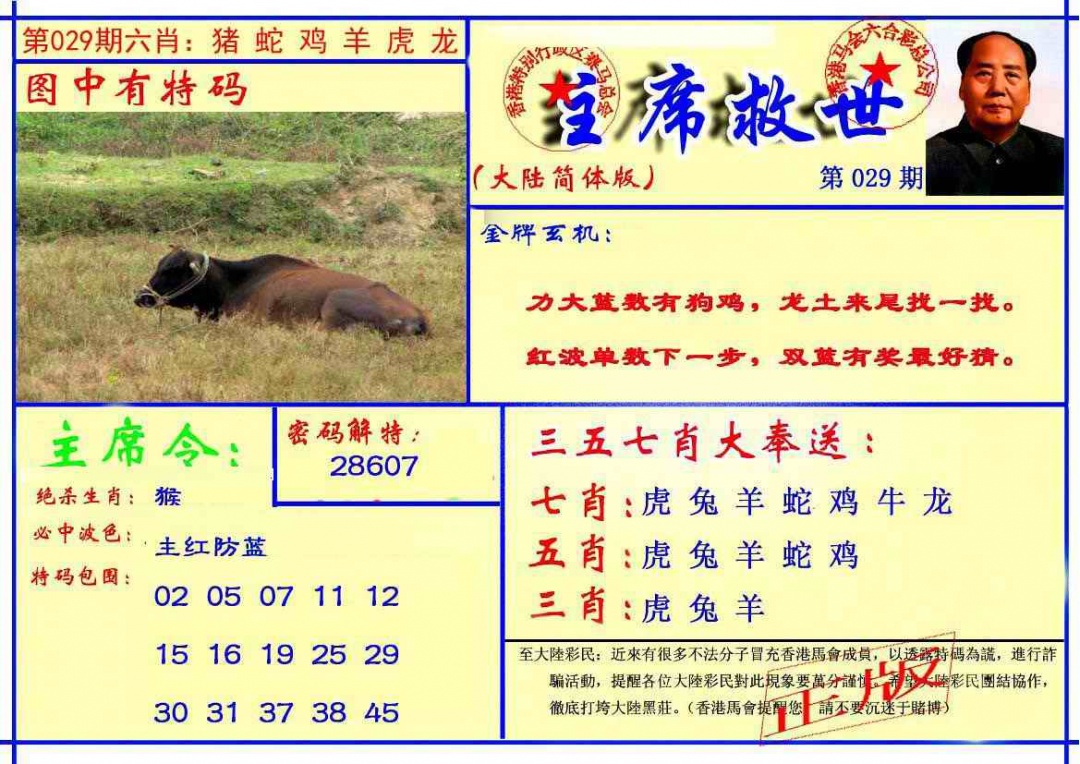 第029期六肖：猪 蛇 鸡 羊 虎 龙
图中有特码
香港特别行政区赛马总会
香港马会六合彩总公司
主席救世
（大陆简体版）
第 029 期
金牌玄机：
力大蓝数有狗鸡，龙土来尾找一找。
红波单数下一步，双蓝有奖最好猜。
主席令：
绝杀生肖：猴
必中波色：主红防蓝
特码包围：
02 05 07 11 12
15 16 19 25 29
30 31 37 38 45
密码解特：
28607
三五七肖大奉送：
七肖：虎 兔 羊 蛇 鸡 牛 龙
五肖：虎 兔 羊 蛇 鸡
三肖：虎 兔 羊
至大陸彩民：近來有很多不法分子冒充香港馬會成員，以透露特码為謊，進行詐
騙活動，提醒各位大陸彩民對此現象要萬分謹慎。希望大陸彩民團結協作，
徹底打垮大陸黑莊。（香港馬會提醒您 請不要沉迷于賭博）
正版